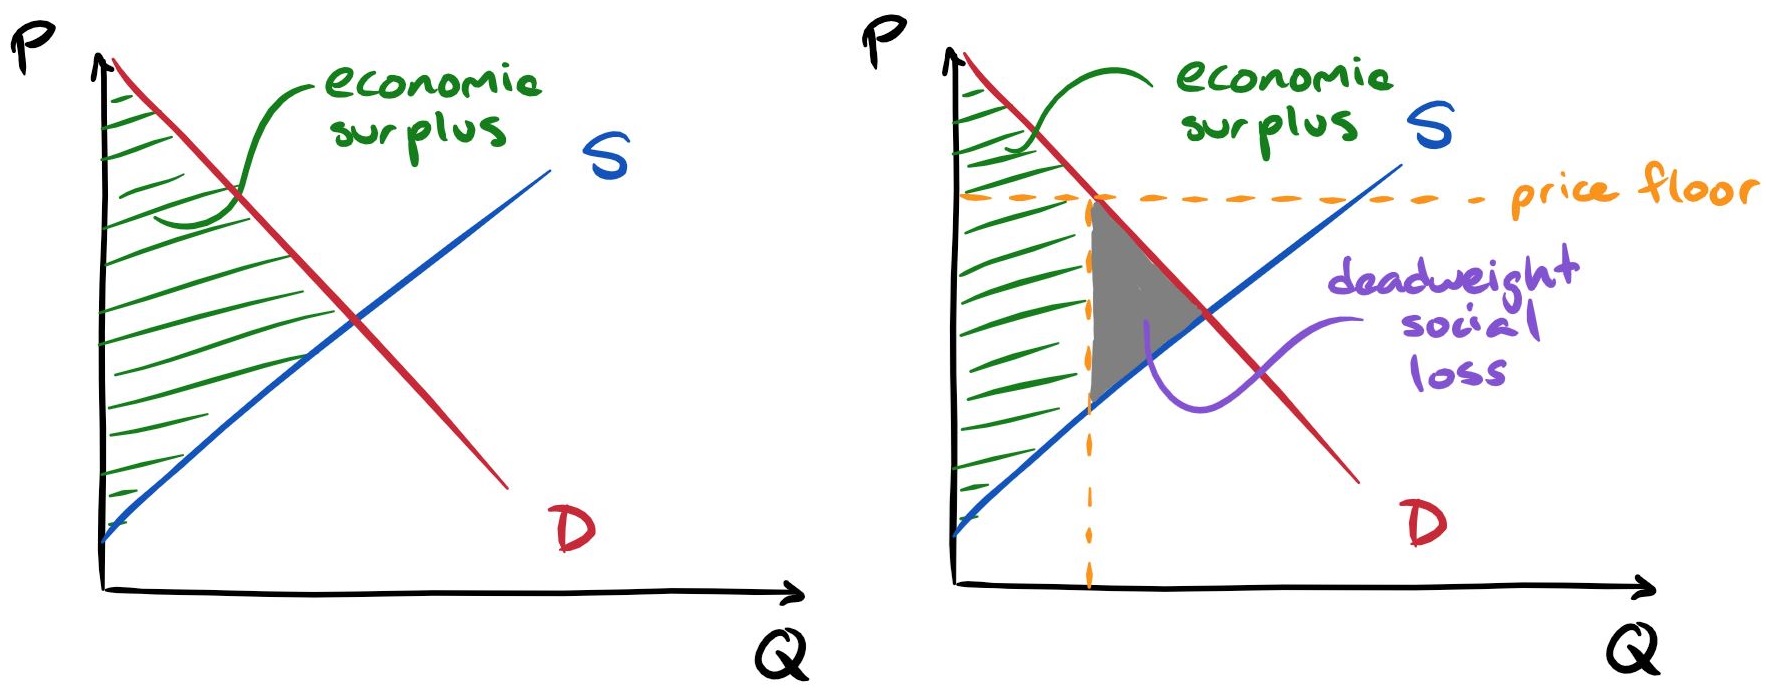 P
economic
surplus
S
D
Q
P
economic
surplus
S
price floor
deadweight
social
loss
D
Q